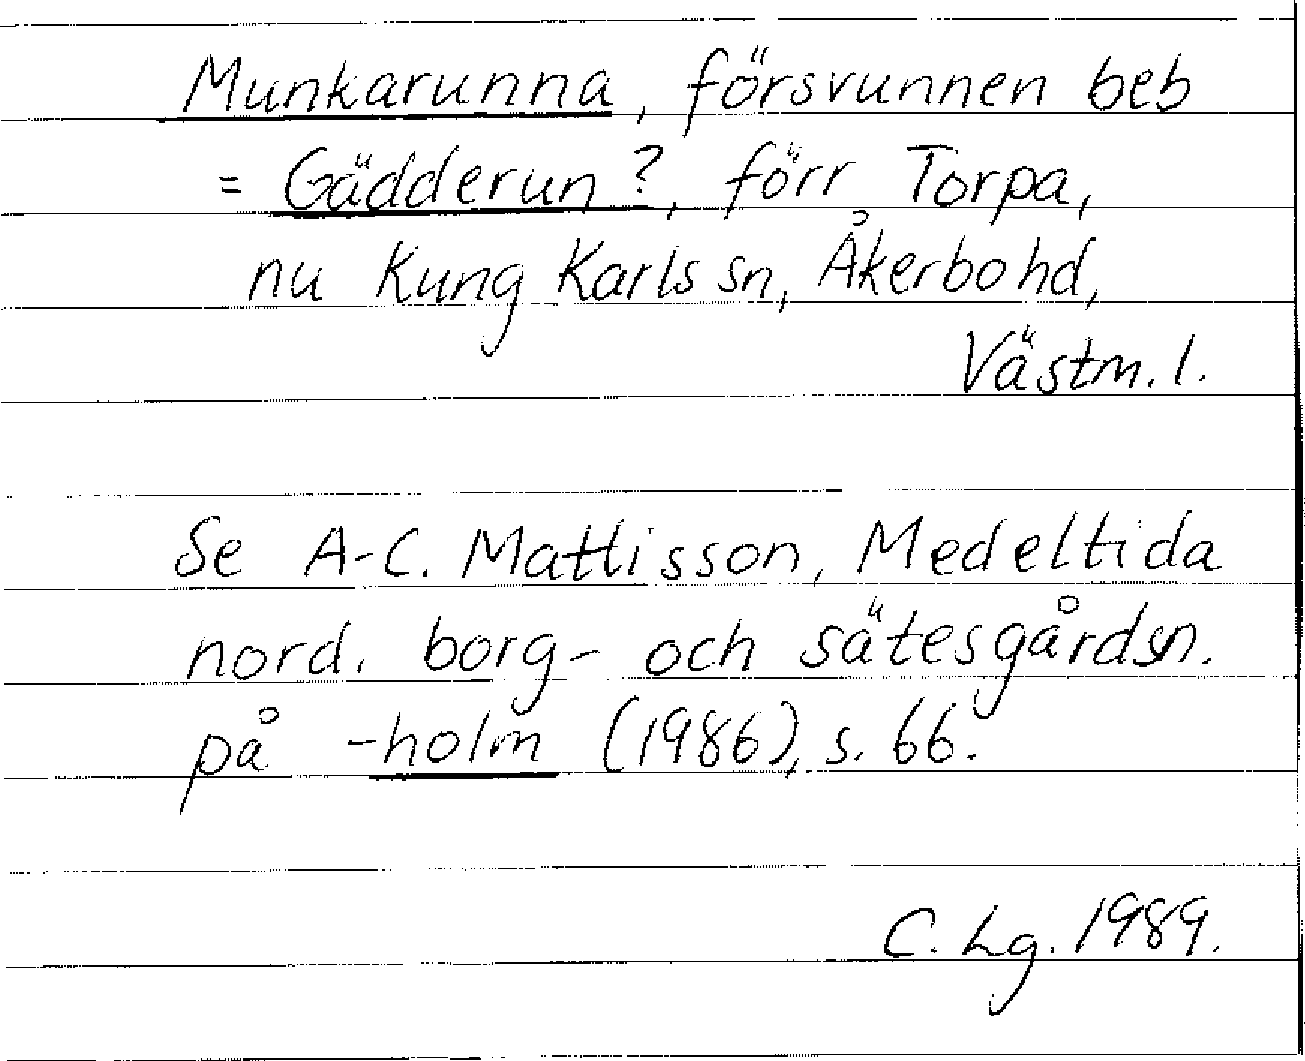 Munkarunna, försvunnen beb
= Gädderun?, förr Torpa,
nu Kung Karls sn, Åkerbo hd,
Västm. l.
Se A-C. Mattisson, Medeltida
nord. borg- och sätesgårdsn.
på -holm (1986), s. 66.
C. Lg. 1989.